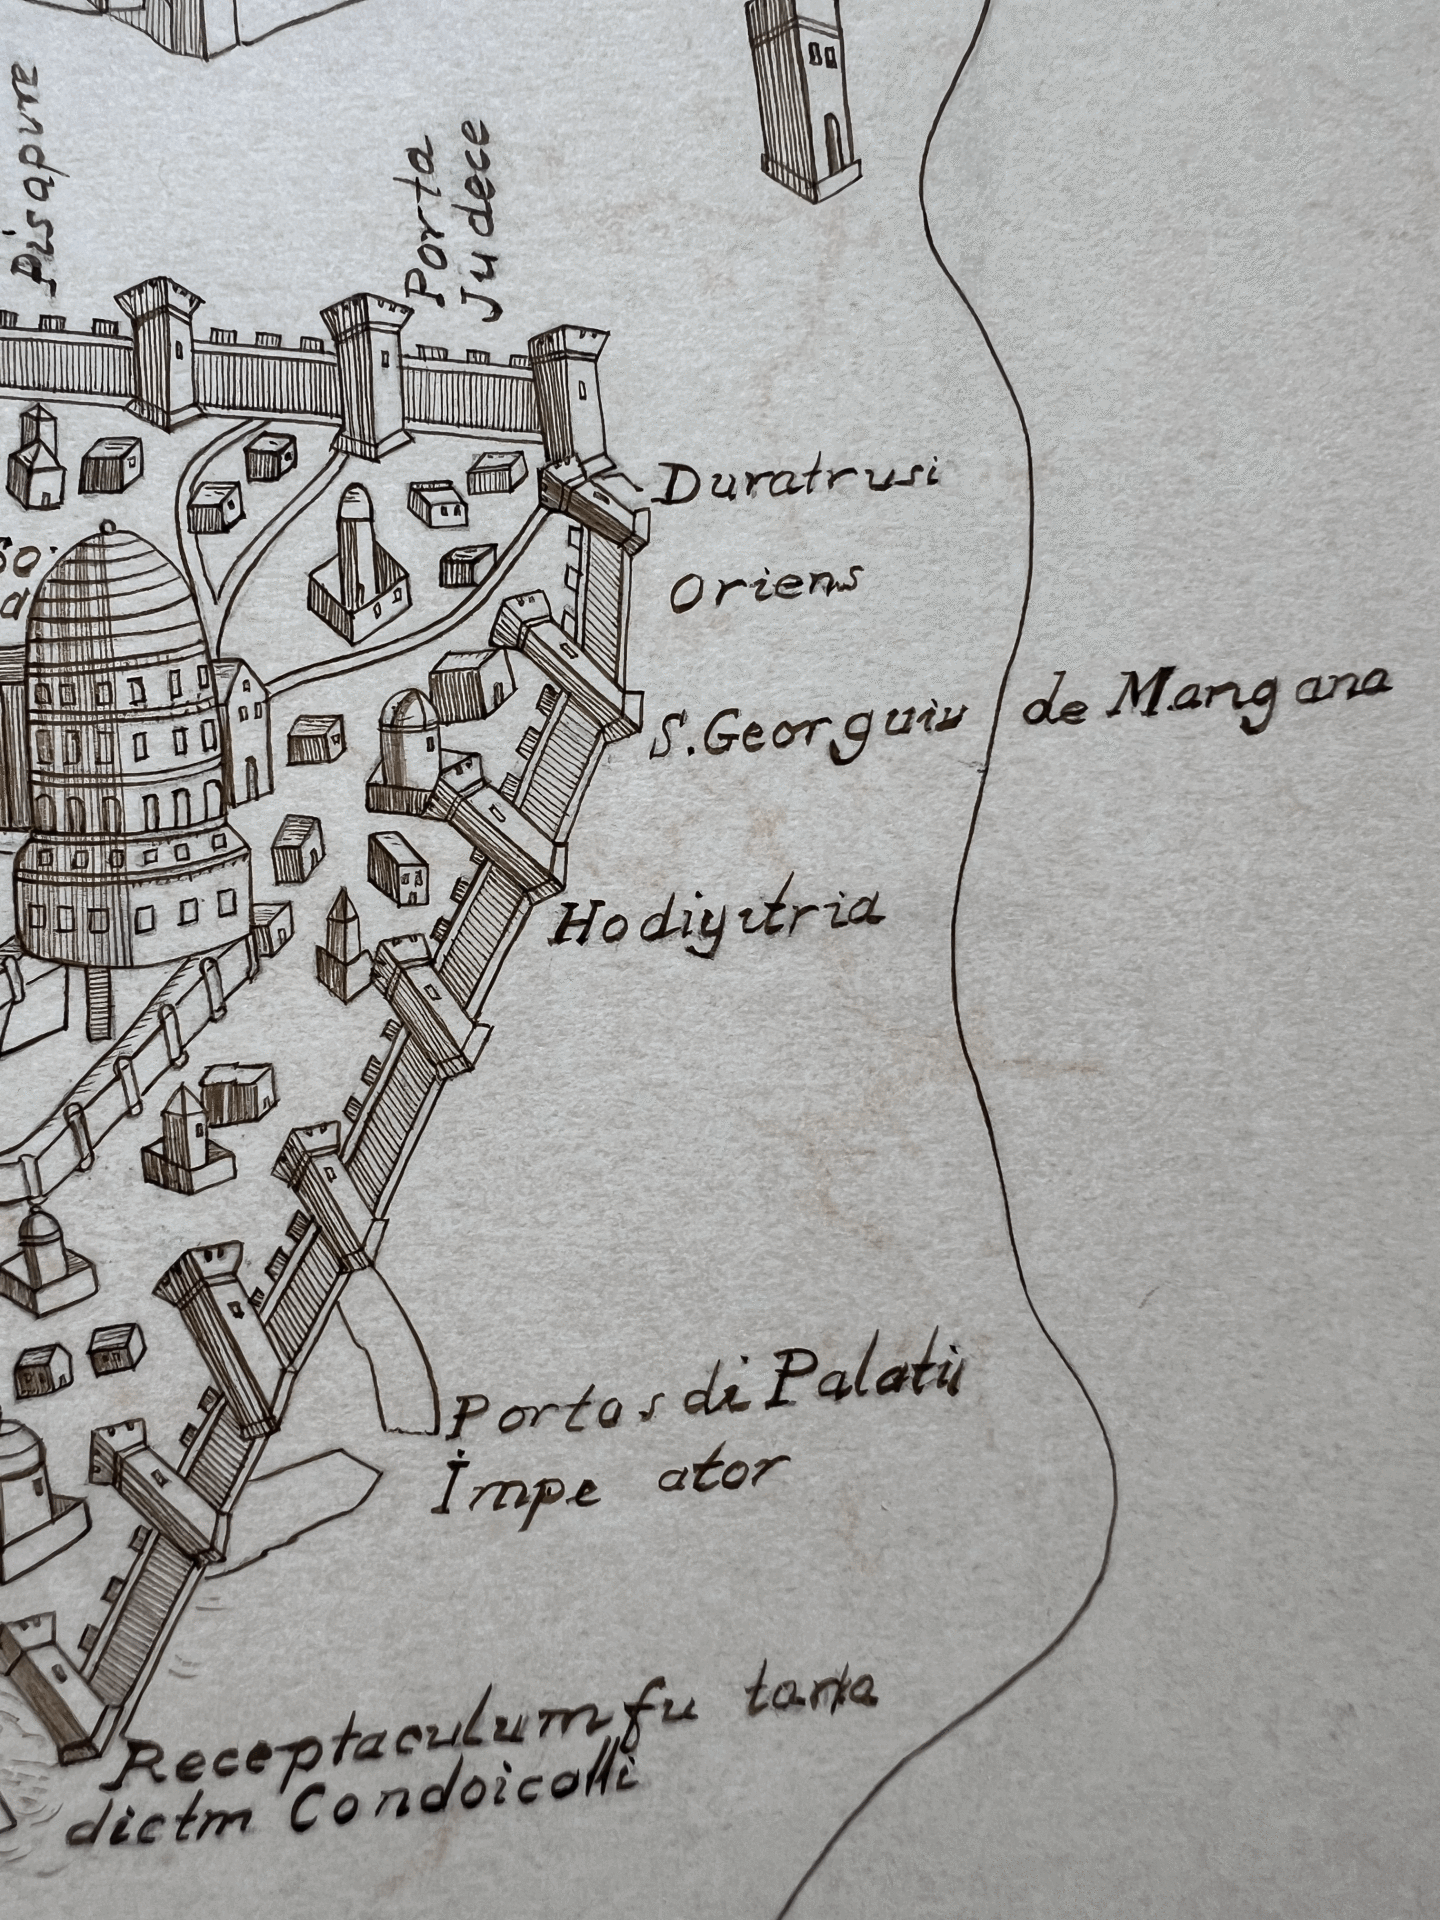 Pisapvre
Porta
Judece
So
a
Duratrusi
Oriens
S. Georguiu de Mangana
Hodiyitria
Portas di Palatii
İmpe ator
Receptaculum fu tarıa
dictm Condoicolli